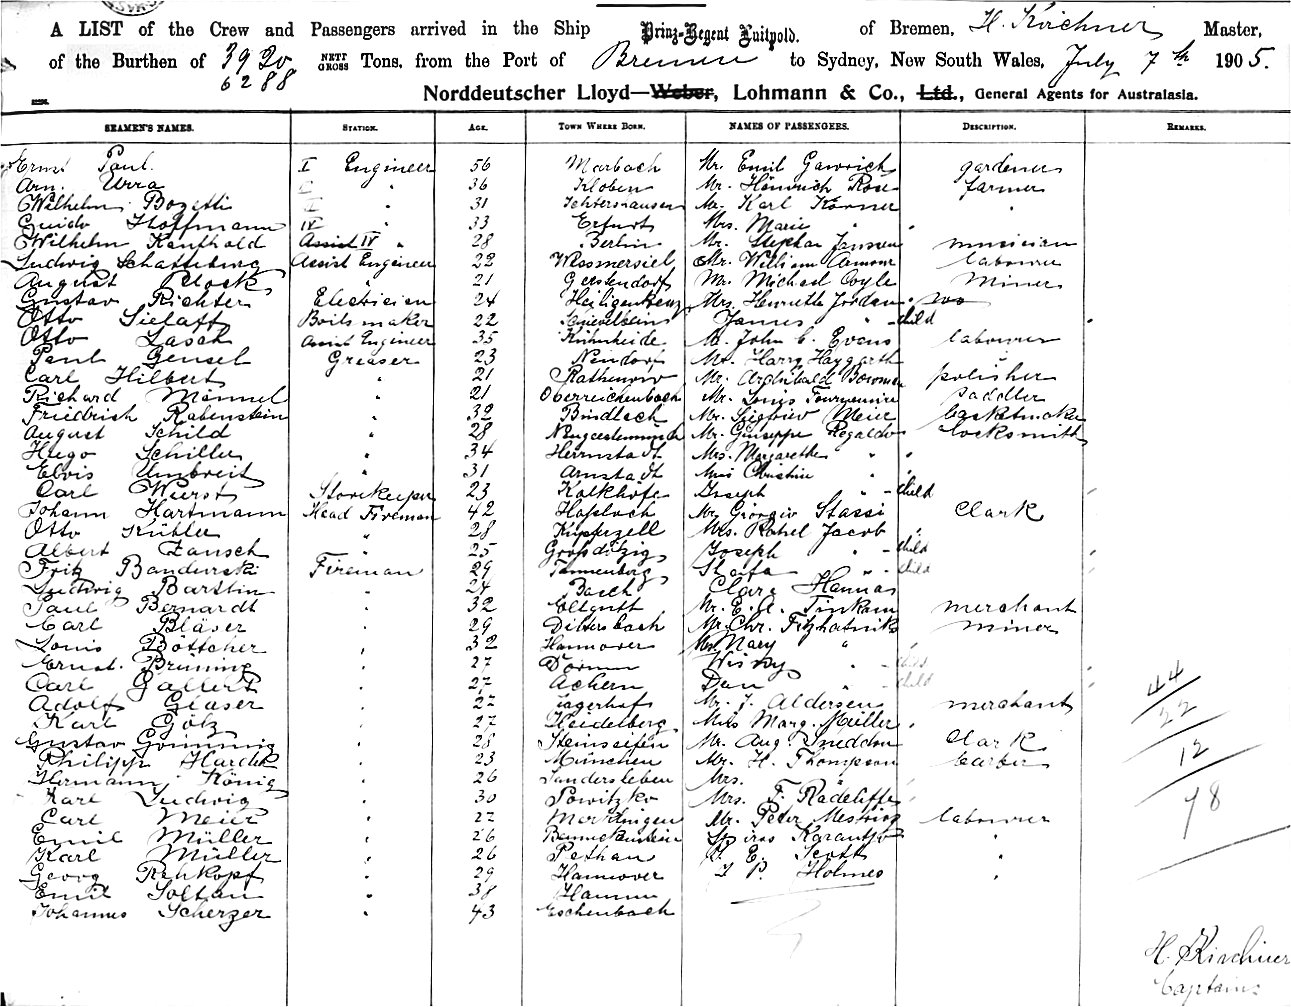 A LIST of the Crew and Passengers arrived in the Ship Prinz-Regent Luitpold. of Bremen, H. Kirchner Master,
of the Burthen of 3920 NETT Tons, from the Port of Bremen to Sydney, New South Wales, July 7th 1905.
6288 GROSS
Norddeutscher Lloyd—Weber, Lohmann & Co., Ltd., General Agents for Australasia.
SEAMEN'S NAMES. STATION. AGE. TOWN WHERE BORN. NAMES OF PASSENGERS. DESCRIPTION. REMARKS.
Ernst Paul. I Engineer 56 Marbach Mr. Emil Gawrich gardener
Arn. Urra " 36 Kloben Mr. Heinrich Rose farmer
Wilhelm Bozetti " 31 Ichtershausen Mr. Karl Körner "
Guido Hoffmann IV " 33 Erfurt Mrs. Marie " "
Wilhelm Kauffhold Assist IV " 28 Berlin Mr. Stephan Janssen musician
Ludwig Schattsburg Assist Engineer 22 Wesmersiel Mr. William Armour labourer
August Plock " 21 Gerstendorf Mr. Michael Coyle Miner
Gustav Richter Electrician 24 Heiligenkreuz Mrs. Henriette Jordan
Otto Sielaff Boilsmaker 22 James " - child
Otto Lasch Assist Engineer 35 Kühnheide Mr. John C. Evans labourer
Paul Gensel Greaser 23 Neudorf Mr. Harry Haygarth "
Carl Hilbert " 21 Rathenow Mr. Archibald Bowman polisher
Richard Männel " 21 Oberreichenbach Mr. Louis saddler
Friedrich Rabenstein " 32 Bindlach Mr. Sigfried Meier basketmaker
August Schild " 28 Mr. Giuseppe Regaldo locksmith
Hugo Schiller " 34 Herrnstadt Mrs. Margarethe " "
Elvis Umbreit " 31 Arnstadt Miss Christine " "
Carl Wurst Storekeeper 23 Kalkhöfe Joseph " - child
Johann Hartmann Head Fireman 42 Hassloch Mr. Giorgio Stassi Clark
Otto Kühler " 28 Kupferzell Mrs. Rahel Jacob "
Albert Zansch " 25 Grossditzig Joseph " - child
Fritz Bandurski Fireman 29 Tannenberg " - child
Ludwig Barthn " 24 Basel Clara Hannas
Paul Bernardt " 32 Ellgutt Mr. E. A. Tinkam merchant
Carl Bläser " 29 Dittersbach Mr. Chr. Fitzpatrick miner
Louis Böttcher " 32 Hannover Mrs. Mary " "
Ernst. Bruning " 27 " - child
Carl Gallert " 27 Achern Dan " - child
Adolf Glaser " 22 Jägerhof Mr. J. Aldersen merchant
Karl Götz " 27 Heidelberg Miss Marg. Müller "
Gustav Gomming " 28 Steinseifen Mr. Aug. Sneddon Clark
Philipp Hardek " 23 München Mr. H. Thompson barber
Hermann König " 26 Sandersleben Mrs. " "
Karl Ludwig " 30 Powitzko Mrs. F. Radcliffe "
Carl Meier " 22 Merdingen Mr. Peter labourer
Emil Müller " 26 Spiros "
Karl Müller " 26 Pethau E. Scott "
Georg Rehkopf " 29 Hannover J P. Holmes "
Emil Soltau " 38 Hamm
Johannes Scherzer " 43 Eschenbach
44
22
12
78
H. Kirchner
Captain